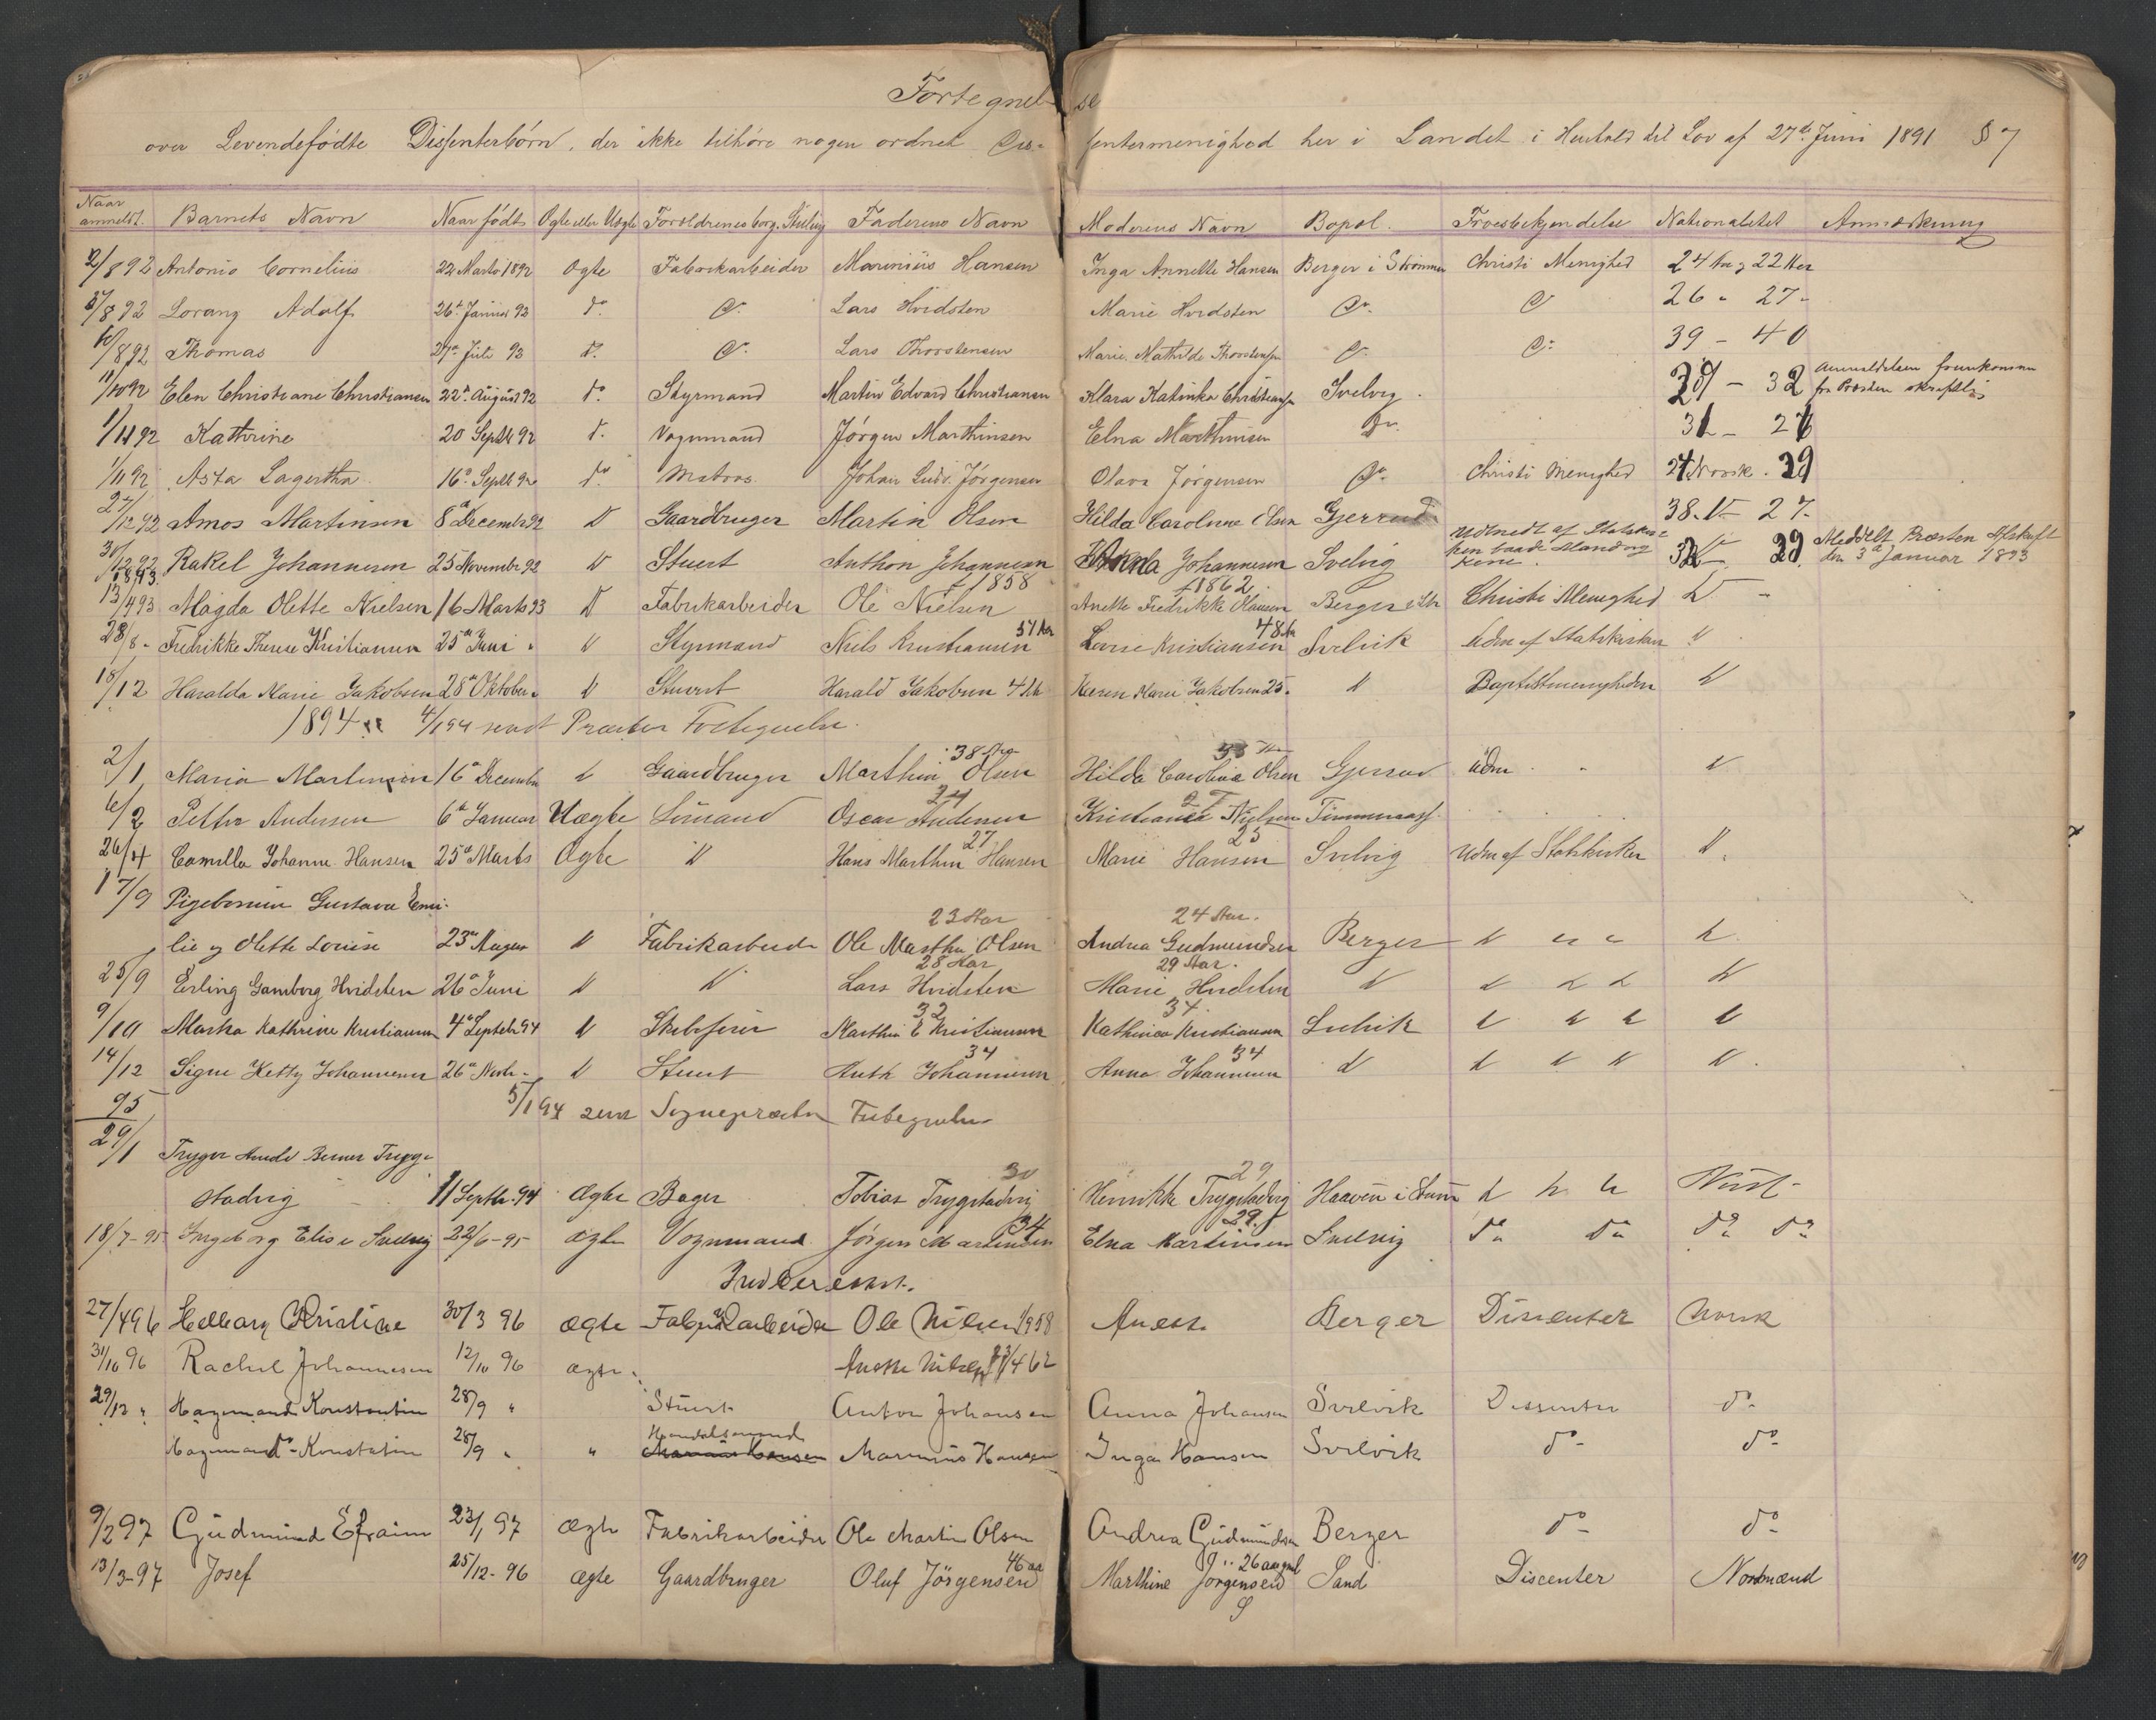 Fortegnelse
over Levendefødte Dissenterbørn, der ikke tilhøre nogen ordnet Dissentermenighed her i Landet i Henhold til Lov af 27de Juni 1891 § 7
Naar anmeldt. Barnets Navn Naar født Ægte eller Uægte Forældrenes borg. Stilling Faderens Navn Moderens Navn Bopæl. Troesbekjendelse Nationalitet Anmærkning
2/8 92 Antonio Cornelius 22 Marts 1892 Ægte Fabrikarbeider Marinius Hansen Inga Annette Hansen Berger i Strømmen Christi Menighed 24 Aar og 22 Aar
/8 92 Lorang Adolf 26de Januar 92 do. do. Lars Hvidsten Marie Hvidsten do. do 26 - 27 -
10/8 92 Thomas 27de Juli 92 do. do. Lars Thorstensen Marie Mathilde Thorstensen do. do. 39 - 40
11/10 92 Elen Christiane Christiansen 22de August 92 do. Styrmand Martin Edvard Christiansen Klara Katinka Christiansen Svelvig. - 32 Anmeldelsen fremkommen fra Præsten skriftlig
1/11 92 Kathrine 20 Septb 92 do. Vognmand Jørgen Marthinsen Elna Marthinsen do. 31 - 26
1/11 92 Asta Lagertha 16de Septb 92 do. Matros. Johan Ludv. Jørgensen Olava Jørgensen do. Christi Menighed 24 Norsk. 29
27/12 92 Amos Martinsen 8de Decembr 92 do Gaardbruger Martin Olsen Hilda Caroline Olsen Gjerrud 38. do 27.
30/12 92 Rakel Johannesen 25 Novembr 92 do Stuert Anthon Johannesen Anna Johannesen Svelvig Udmeldt af Statskirken baade Mand og Kone. 32 do 29. Meddelt Præsten Afskrift den 3de Januar 1893
1893.
13/4 93 Magda Olette Nielsen 16 Marts 93 do Fabrikarbeider Ole Nielsen f 1858 Anette Fredrikke Olausen f 1862 Berger Christi Menighed do -
28/8 - Fredrikke Therese Kristiansen 25de Juni " do Styrmand Niels Kristiansen 51 Aar Lovise Kristiansen 48 Aar Svelvik Udm af Statskirken do
18/12 Haralda Marie Jakobsen 28de Oktober " do Stuert Harald Jakobsen Karen Marie Jakobsen 25. do Baptistmenigheden do
1894 4/1 94 sendt Præsten Fortegnelse.
2/1 Maria Martinson 16de Decembr do Gaardbruger Marthin Olsen 38 Aar Hilda Caroline Olsen 33 Aar Gjerrud Udm - - do
6/2 Petter Andersen 6de Januar Uægte Sømand Oscar Andersen 24 Kristiane Nielsen 27 Timmeraas
26/4 Camilla Johanne Hansen 25de Marts Ægte do Hans Marthin Hansen 27 Marie Hansen 23 Svelvig Udm af Statskirken do.
17/9 Pigebørnene Gustava Emi-
lie og Olette Louise 23de August do Fabrikarbeider Ole Marthin Olsen 23 Aar Andrea Gudmundsen 24 Aar. Berger do do do do
25/9 Erling Gamborg Hvidsten 26de Juni do do Lars Hvidsten 28 Aar Marie Hvidsten 29 Aar. do do do do do
9/10 Marta Kathrine Kristiansen 4de Septebr 94 do Skibsfører Marthin E Kristiansen 32 Kathinca Kristiansen 34. Svelvik do do do do
14/12 Signe Hetty Johannesen 26de Novbr - do Stuert Anth Johannesen 34 Anna Johannesen 34 do do do do do.
5/1 94 sendt Sognepræsten Fortegnelse
95
29/1 Trygve Bemer Trygg-
stadvig 11 Septbr. 94 Ægte Bager Tobias Trygstadvig 30 Henrikke Trygstadvig 29 Haaven i Strøm do do do Norsk
18/7 - 95 Ingeborg Elise Svelvig 22/6 - 95 ægte Vognmand Jørgen Martinsen 34 Elna Martinsen 29. Svelvig do do do do
Indberettet.
27/4 96 Hedvarg Kristine 30/3 96 ægte Fabrikarbeider Ole Nilsen Anette Berger Dissenter Norsk
31/10 96 Rachel Johannesen 12/10 96 ægte Anette Nilsen /4 62
29/12 " Hagemand Konstantin 28/9 " Stuert Anton Johansen Anna Johansen Svelvik Dissenter do
Hagemand - Konstatin 28/9 " " Handelsmand Marinus Hansen Marinius Hansen Inga Hansen Svelvik do do
9/2 97 Gudmund Efraim 23/1 97 ægte Fabrikarbeider Ole Martin Olsen Andrea Gudmundsen Berger do do
13/3 - 97 Josef 25/12 - 96 ægte Gaardbruger Oluf Jörgensen 46 aar Marthine Jörgensen Sand Discenter Nordmænd